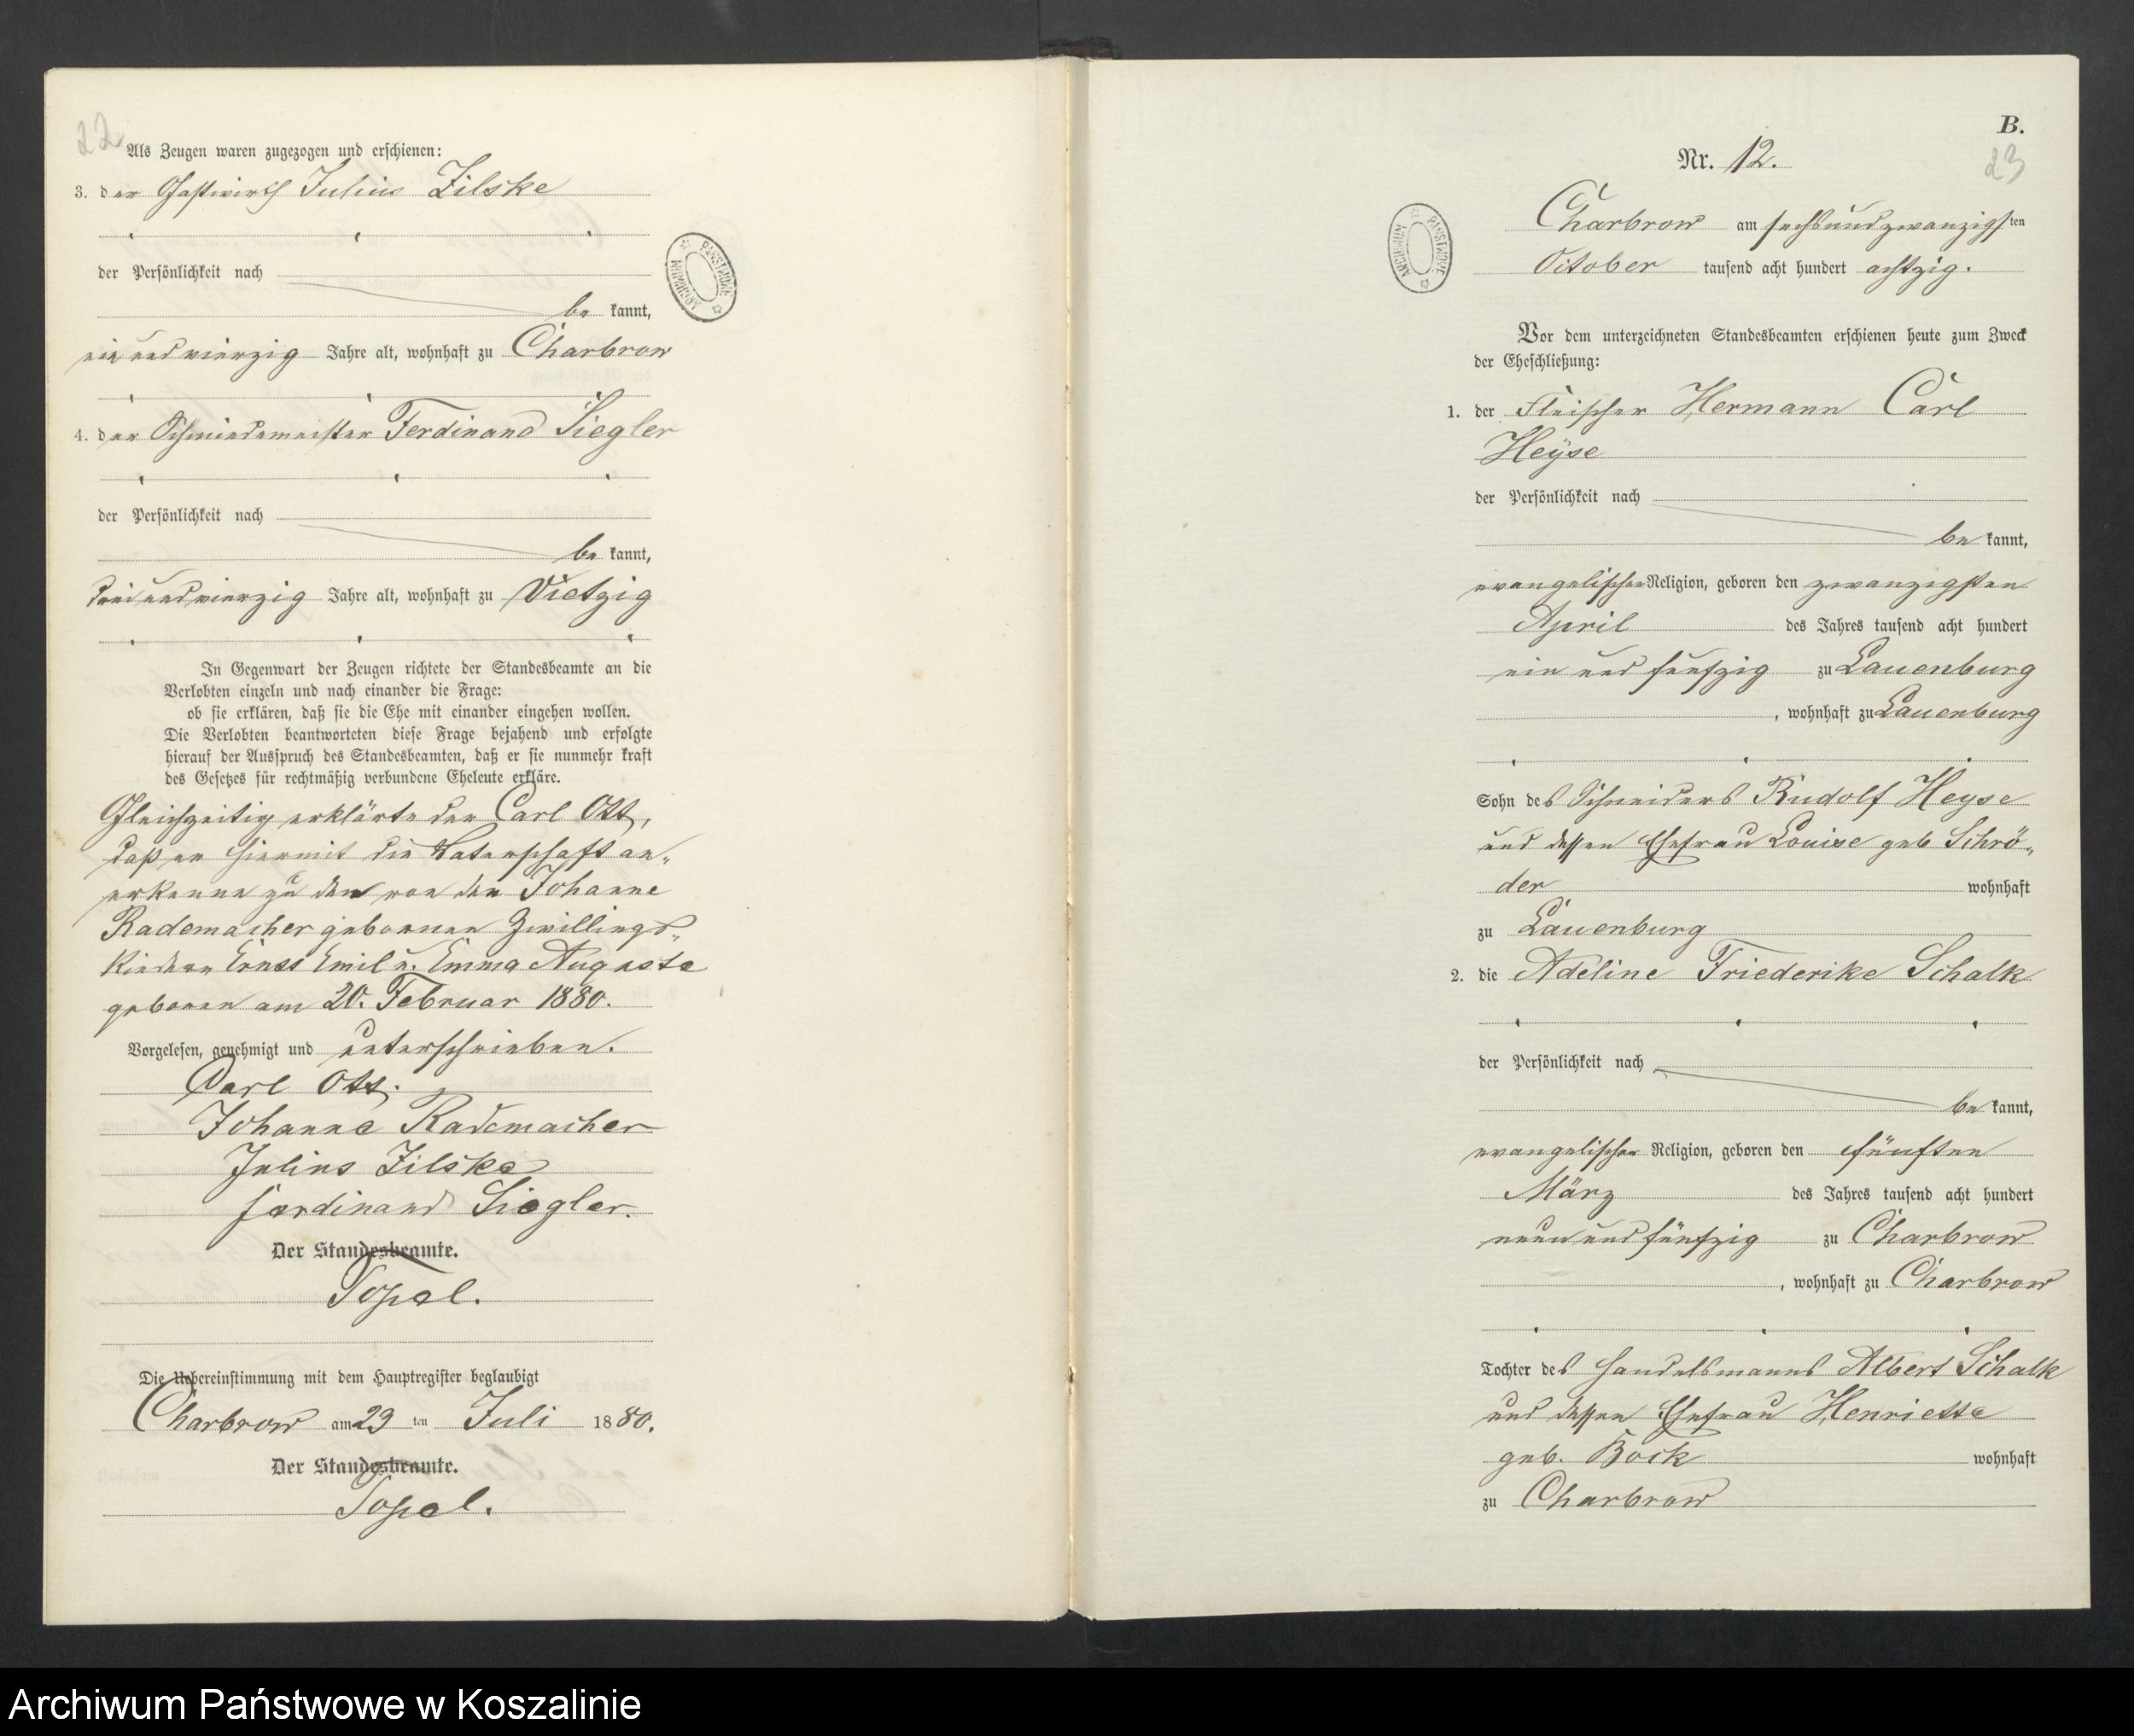 22
Als Zeugen waren zugezogen und erschienen:
3. der Gastwirth Julius Zilske
der Persönlichkeit nach
be kannt,
ein und vierzig Jahre alt, wohnhaft zu Charbrow
4. der Schmiedemeister Ferdinand Siegler
der Persönlichkeit nach
be kannt,
drei und vierzig Jahre alt, wohnhaft zu Vietzig
In Gegenwart der Zeugen richtete der Standesbeamte an die
Verlobten einzeln und nach einander die Frage:
ob sie erklären, daß sie die Ehe mit einander eingehen wollen.
Die Verlobten beantworteten diese Frage bejahend und erfolgte
hierauf der Ausspruch des Standesbeamten, daß er sie nunmehr kraft
des Gesetzes für rechtmäßig verbundene Eheleute erkläre.
Gleichzeitig erklärte der Carl Ott,
daß er hiermit die Vaterschaft an„
erkenne zu den von der Johanne
Rademacher geborenen Zwillings„
kindern Ernst Emil u. Emma Auguste
geboren am 20. Februar 1880.
Vorgelesen, genehmigt und unterschrieben.
Carl Ott.
Johanne Rademacher
Julius Zilske
Ferdinand Siegler.
Der Standesbeamte.
Topel.
Die Uebereinstimmung mit dem Hauptregister beglaubigt
Charbrow am 23 ten Juli 1880.
Der Standesbeamte.
Topel.
ARCHIWUM PAŃSTWOWE
B.
23
Nr. 12.
ARCHIWUM PAŃSTWOWE
Charbrow am sechsundzwanzigsten
October tausend acht hundert achtzig.
Vor dem unterzeichneten Standesbeamten erschienen heute zum Zweck
der Eheschließung:
1. der Fleischer Hermann Carl
Heyse
der Persönlichkeit nach
be kannt,
evangelischer Religion, geboren den zwanzigsten
April des Jahres tausend acht hundert
ein und fünfzig zu Lauenburg
, wohnhaft zu Lauenburg
Sohn des Schneiders Rudolf Heyse
und dessen Ehefrau Louise geb Schrö„
der wohnhaft
zu Lauenburg
2. die Adeline Friederike Schalk
der Persönlichkeit nach
be kannt,
evangelischer Religion, geboren den fünften
März des Jahres tausend acht hundert
neun und fünfzig zu Charbrow
, wohnhaft zu Charbrow
Tochter des Handelsmanns Albert Schalk
und dessen Ehefrau Henriette
geb. Bock wohnhaft
zu Charbrow
Archiwum Państwowe w Koszalinie